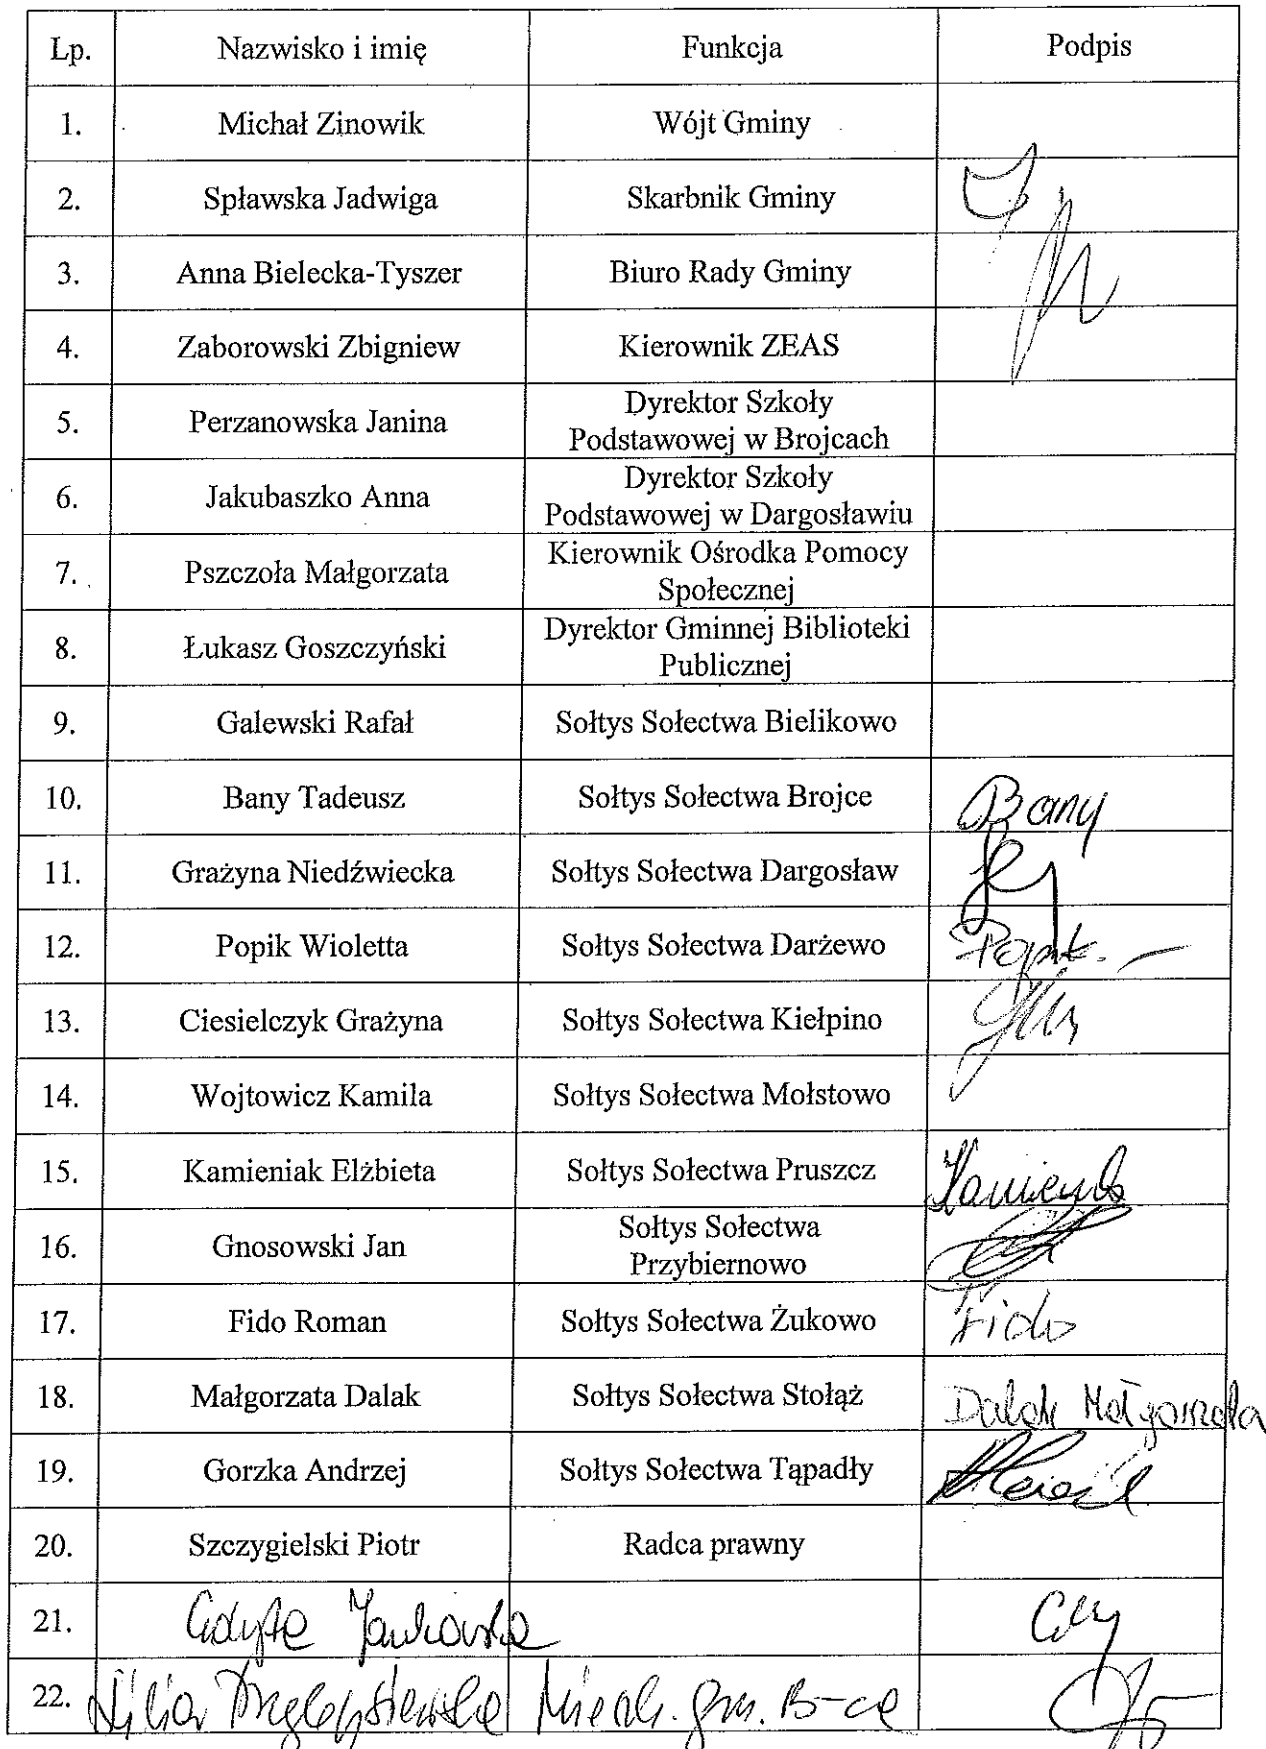 Lp. Nazwisko i imię Funkcja Podpis
1. Michał Zinowik Wójt Gminy
2. Spławska Jadwiga Skarbnik Gminy
3. Anna Bielecka-Tyszer Biuro Rady Gminy
4. Zaborowski Zbigniew Kierownik ZEAS
5. Perzanowska Janina Dyrektor Szkoły
Podstawowej w Brojcach
6. Jakubaszko Anna Dyrektor Szkoły
Podstawowej w Dargosławiu
7. Pszczoła Małgorzata Kierownik Ośrodka Pomocy
Społecznej
8. Łukasz Goszczyński Dyrektor Gminnej Biblioteki
Publicznej
9. Galewski Rafał Sołtys Sołectwa Bielikowo
10. Bany Tadeusz Sołtys Sołectwa Brojce Bany
11. Grażyna Niedźwiecka Sołtys Sołectwa Dargosław
12. Popik Wioletta Sołtys Sołectwa Darżewo Popik
13. Ciesielczyk Grażyna Sołtys Sołectwa Kiełpino
14. Wojtowicz Kamila Sołtys Sołectwa Mołstowo
15. Kamieniak Elżbieta Sołtys Sołectwa Pruszcz
16. Gnosowski Jan Sołtys Sołectwa
Przybiernowo
17. Fido Roman Sołtys Sołectwa Żukowo Fido
18. Małgorzata Dalak Sołtys Sołectwa Stołąż Dalak Małgorzata
19. Gorzka Andrzej Sołtys Sołectwa Tąpadły
20. Szczygielski Piotr Radca prawny
21. Edyta Jankowska
22.